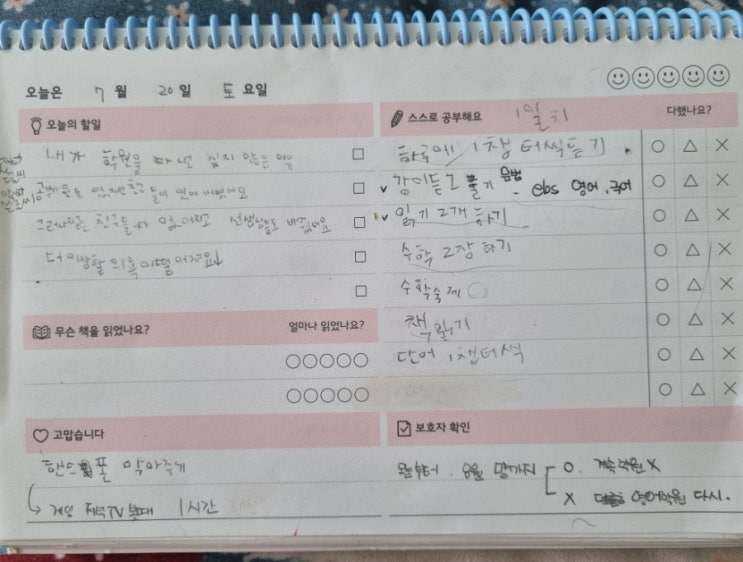 오늘은 7 월 20 일 토 요일
오늘의 할일
내가 학원을 다니고 싶지 않은 이유
친구들이 있어
그러나 지금은 친구들 다 없어지고 선생님들도 바뀌었어요
더 이상 할 의욕이
무슨 책을 읽었나요? 얼마나 읽었나요?
고맙습니다
핸드폰 막아주기
게임 저녁TV 볼때 1시간
스스로 공부해요 1일치 다했나요?
하루에 1챕터씩 듣기
강의듣고 풀기 문법 ebs 영어, 국어
읽기 2개 하기
수학 2장 하기
수학숙제
책 읽기
단어 1챕터씩
보호자 확인
8월 말까지 O. 계속 학원 X
X 영어학원 다시.